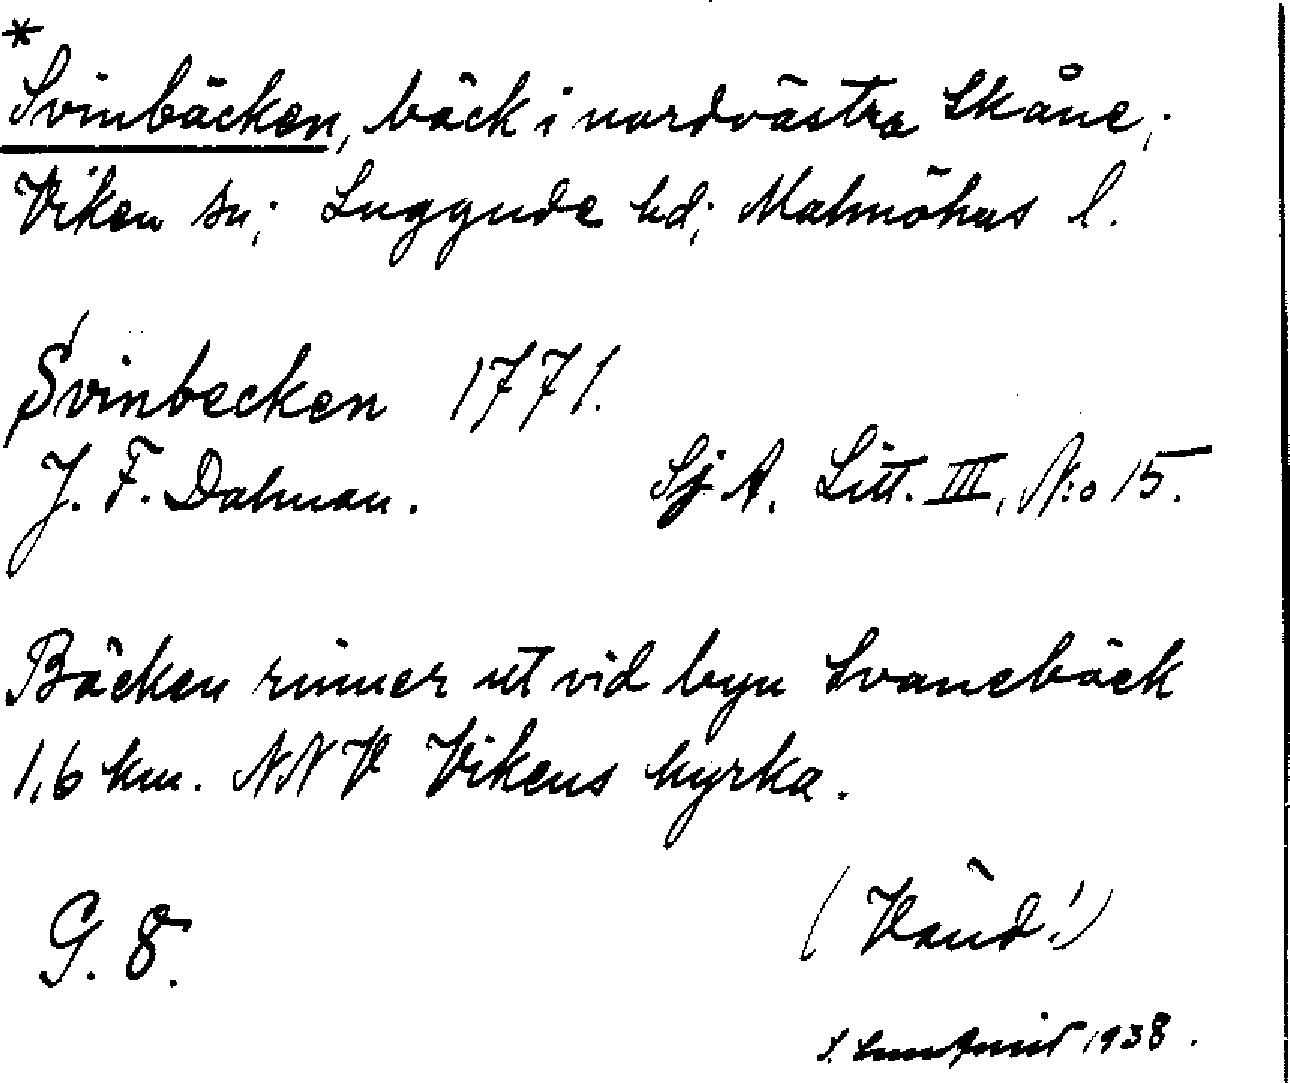 *
Svinbäcken, bäck i nordvästra Skåne;
Viken sn; Luggude hd; Malmöhus l.
Svinbecken 1771.
J. F. Dalman. Sj. A. Litt. III, N:o 15.
Bäcken rinner ut vid byn Svanebäck
1,6 km. NNV Vikens kyrka.
G. 8. (Vänd!)
S. 1938.